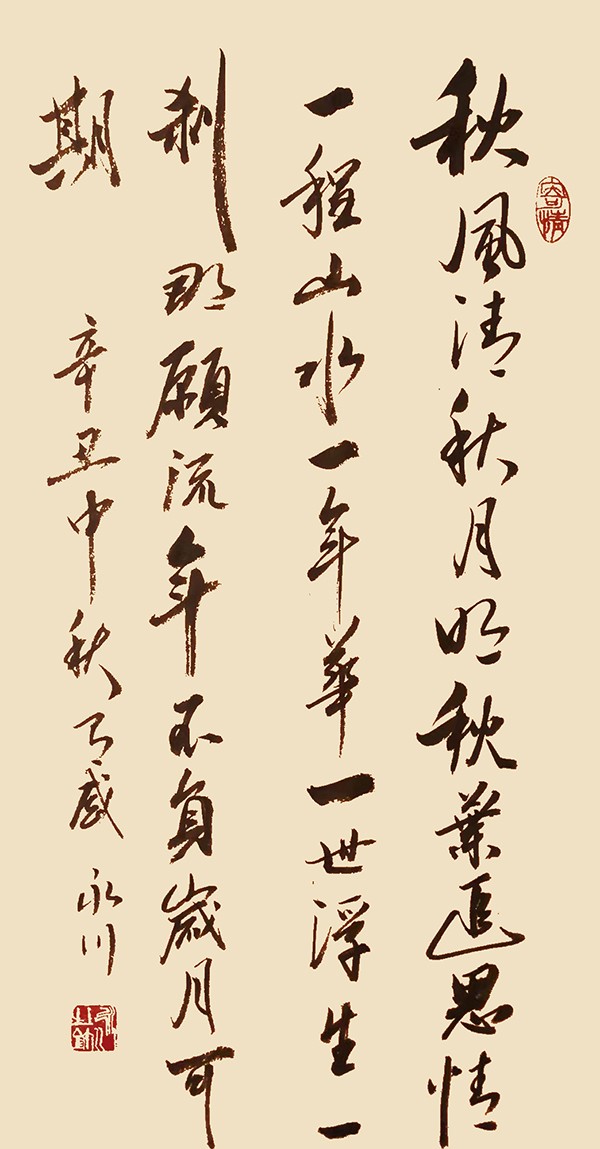 寄情
秋風清秋月明秋葉追思情
一程山水一年華一世浮生一
刹那願流年不負歲月可
期
辛丑中秋有感 永川